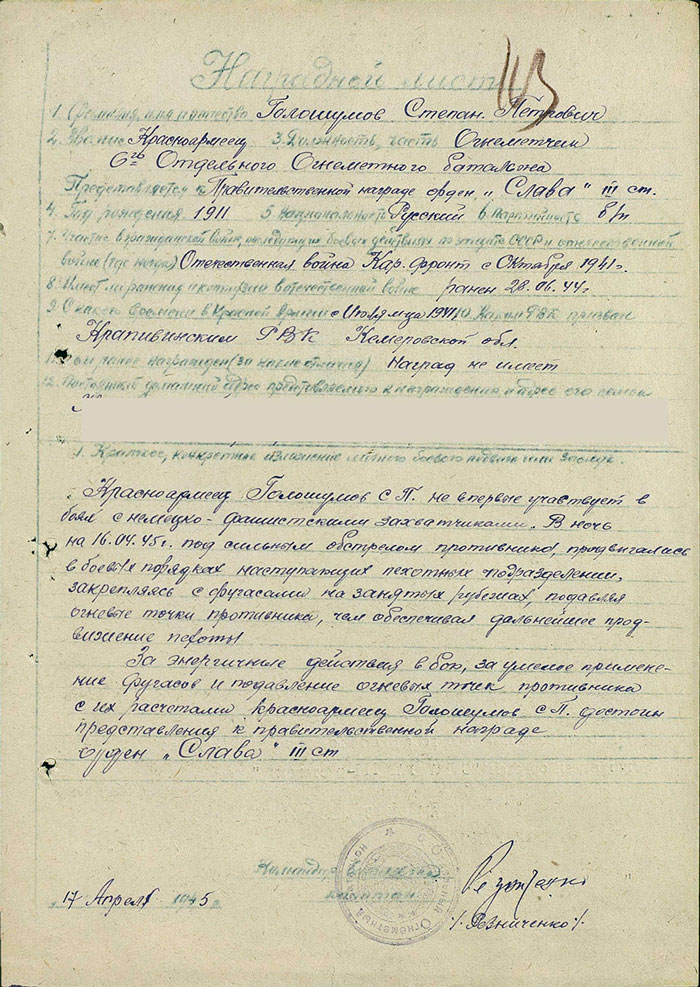 Наградной лист
113
1. Фамилия, имя и отчество Голошумов Степан Петрович
2. Звание Красноармеец 3. Должность, часть Огнеметчик
6го Отдельного Огнеметного батальона
Представляется к Правительственной награде орден „Слава" III ст.
4. Год рождения 1911 5. Национальность Русский 6. Партийность б/п
7. Участие в гражданской войне, последующих боевых действиях по защите СССР и отечественной
войне (где, когда) Отечественная война Кар. Фронт с Октября 1941г.
8. Имеет ли ранения и контузии в отечественной войне ранен 28.06.44г.
9. С какого времени в Красной Армии с 1941 10. Каким РВК призван
Крапивинским РВК Кемеровской обл.
11. Чем ранее награжден (за какие отличия) Наград не имеет
12. Постоянный домашний адрес представляемого к награждению и адрес его семьи
1. Краткое, конкретное изложение личного боевого подвига или заслуг.
Красноармеец Голошумов С П. не впервые участвует в
боях с немецко-фашистскими захватчиками. В ночь
на 16.04.45г. под сильным обстрелом противника, продвигались
в боевых порядках наступающих пехотных подразделений,
закрепляясь с фугасами на занятых рубежах, подавляя
огневые точки противника, чем обеспечивал дальнейшее прод-
вижение пехоты
За энергичные действия в бою, за умелое примене-
ние фугасов и подавление огневых точек противника
с их расчетами красноармеец Голошумов С П. достоин
представления к правительственной награде
орден „Слава" III ст
Командир
капитан
17 Апреля 1945
/. Резниченко /.